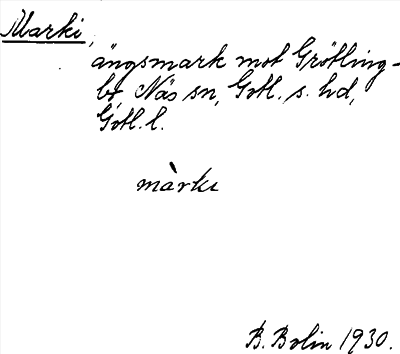 Marki,
ängsmark mot Grötling-
bo Näs sn, Gotl. s. hd,
Gotl. l.
màrkı
B. Bolin 1930.